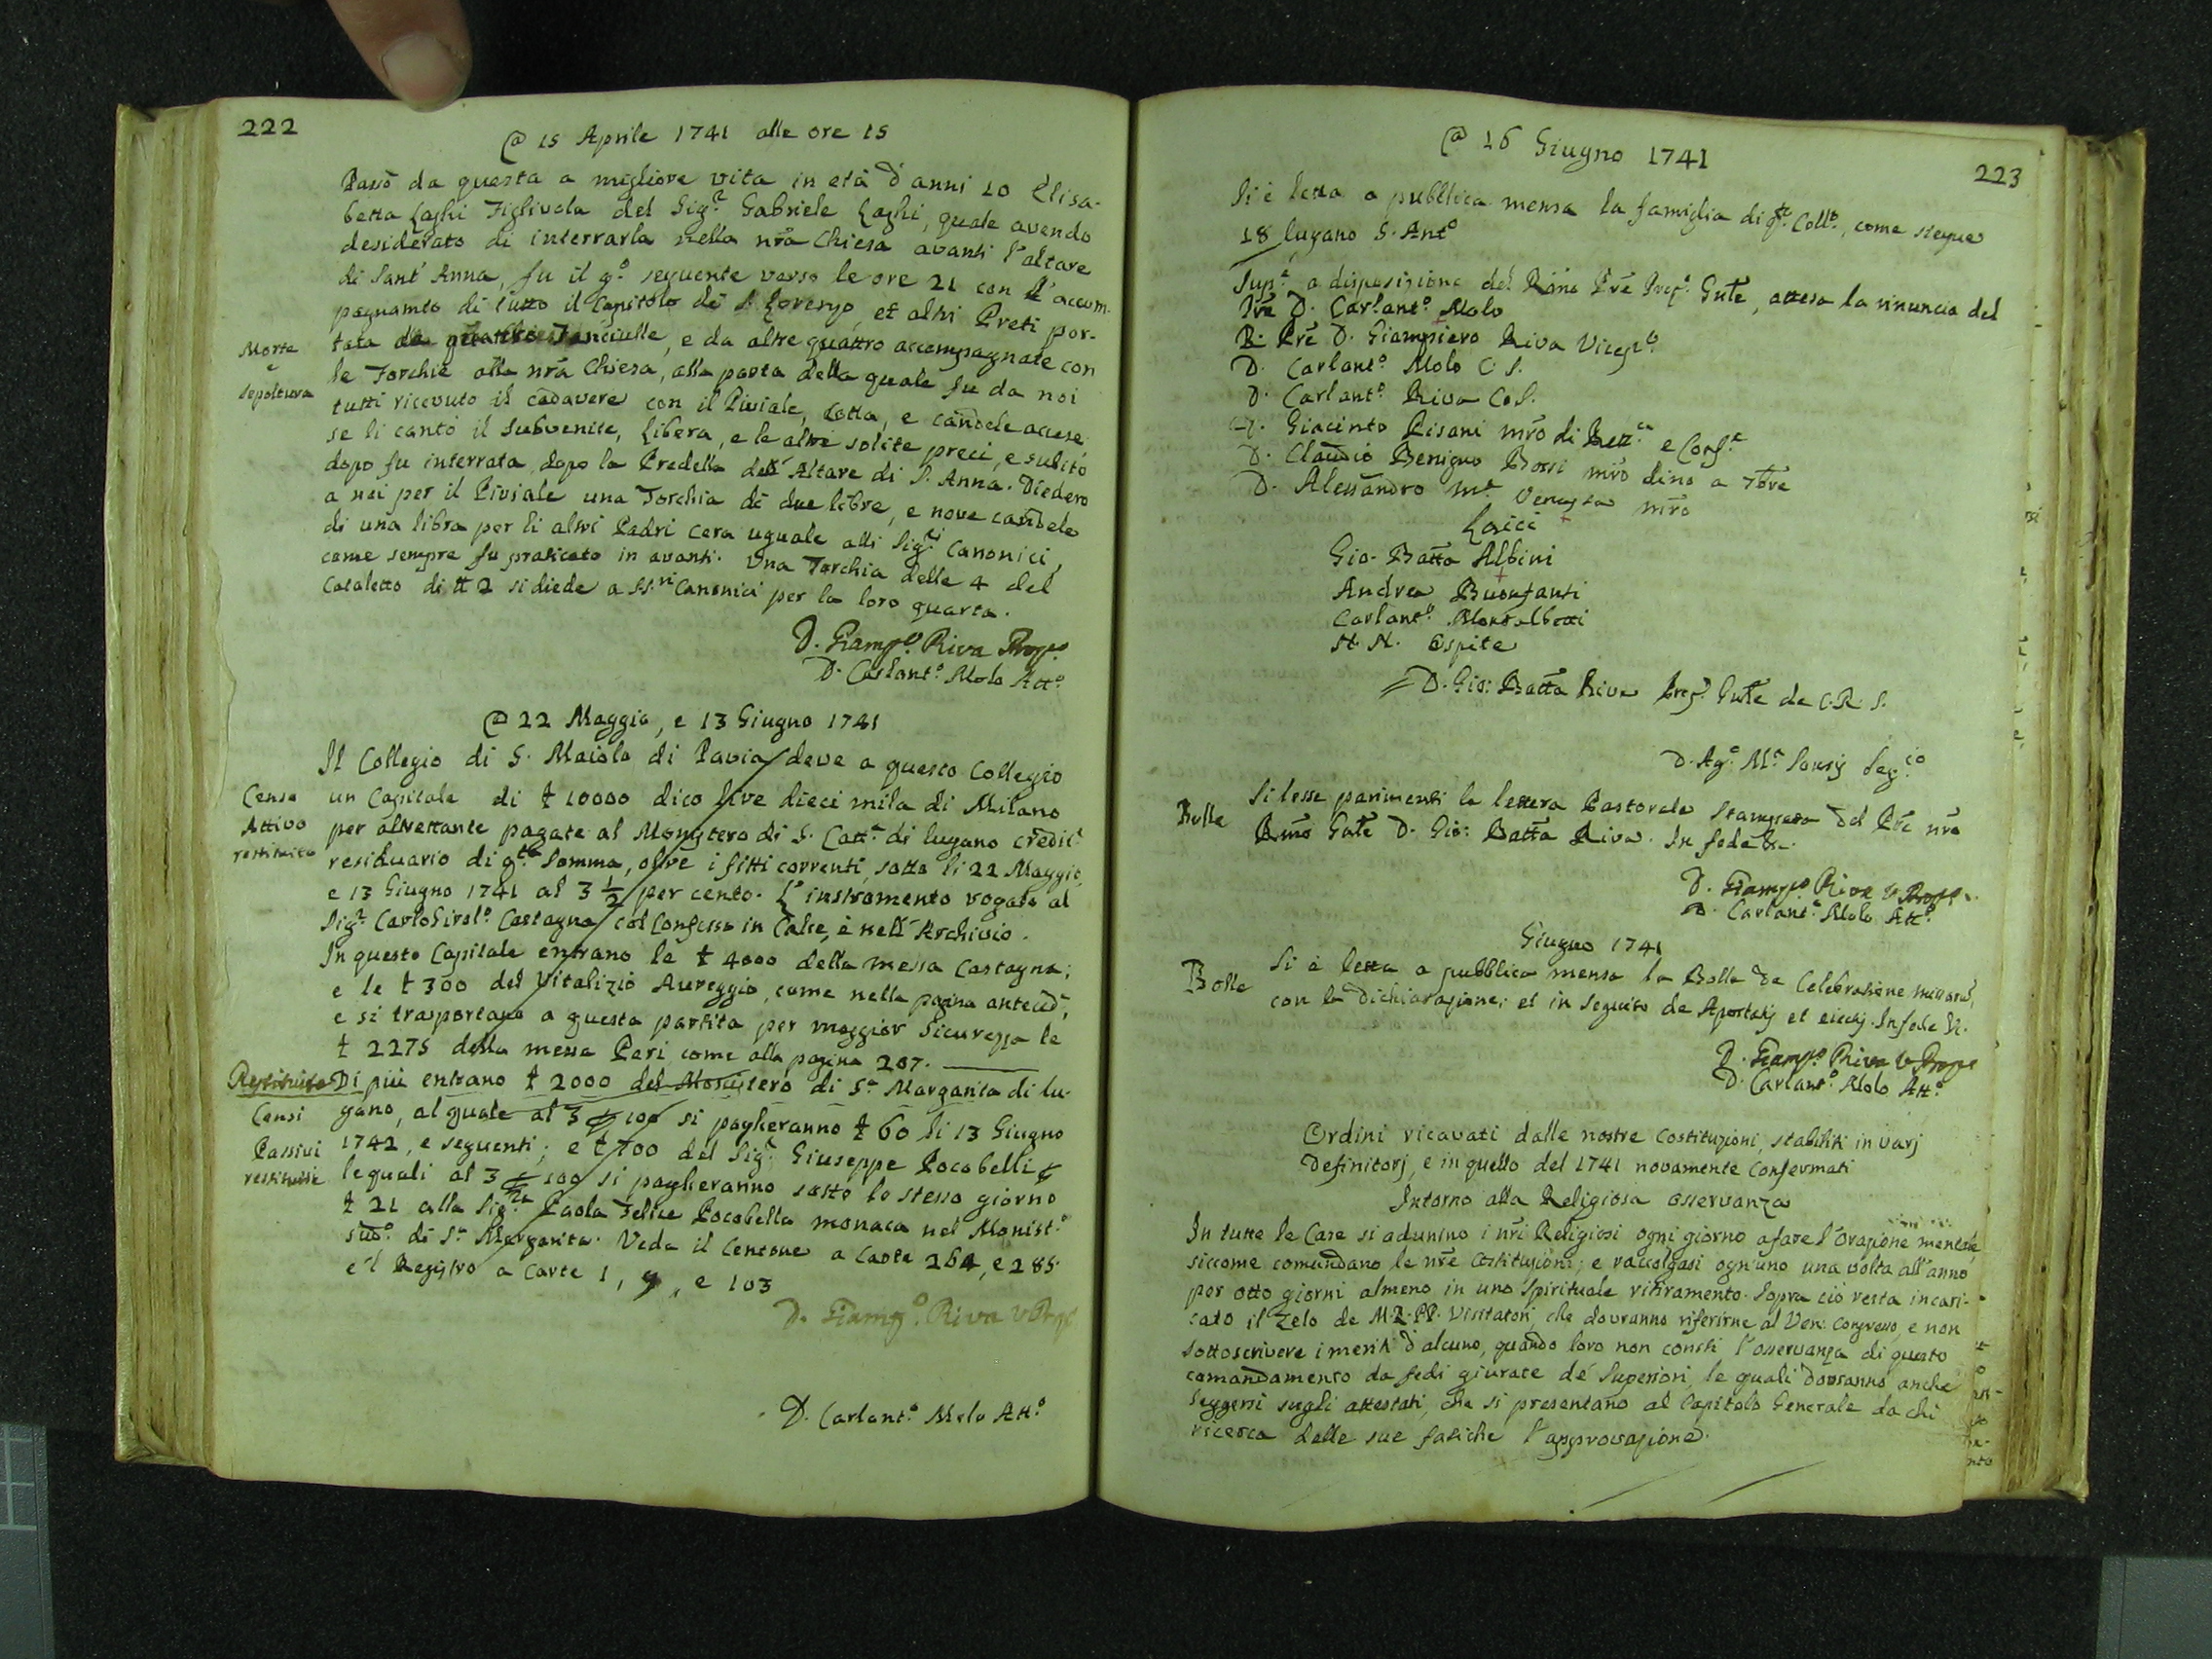 222
@ 15 Aprile 1741 alle ore 15
Passò da questa a migliore vita in età d'anni 10 Elisa-
betta Laghi Figlivola del Sig.r Gabriele Laghi, quale avendo
desiderato di interrarla nella nrã Chiesa avanti l'altare
di Sant' Anna, fu il g.o seguente verso le ore 21 con l'accom-
pagnamto di tutto il Capitolo di S. Lorenzo, et altri Preti por-
tata da quattro Fanciulle, e da altre quattro accompagnate con
Morte
e
Sepoltura
le Torchie alla nrã Chiesa, alla porta della quale fu da noi
tutti ricevuto il cadavere con il Piviale, Cotta, e candele accese
se li cantò il Subvenite, Libera, e le altre solite preci, e subito
dopo fu interrata dopo la Predella dell' Altare di S. Anna. Diedero
a noi per il Piviale una Torchia di due libre, e nove candele
di una libra per li altri Padri cera uguale alli Sig.ri Canonici,
come sempre fu praticato in avanti. Una Torchia delle 4 del
Cataletto di ₶ 2 si diede a SS.ri Canonici per la loro quarta.
D. Giamp.o Riva Prop.o
D. Carlant.o Molo Att.o
@ 22 Maggio, e 13 Giugno 1741
Il Collegio di S. Maiolo di Pavia deve a questo Collegio
Censo
Attivo
restituito
un Capitale di ł 10000 dico lire dieci mila di Milano
per altrettante pagate al Monistero di S. Catt.a di lugano
residuario di q.ta Somma, oltre i fitti correnti, sotto li 22 Maggio,
e 13 Giugno 1741 al 3 1/2 per cento. L'instromento rogato al
Sig.r Castagna col Confesso in Calce, è nell' Archivio.
In questo Capitale entrano le ł 4000 della messa Castagna;
e le ł 300 del Vitalizio Aureggio, come nella pagina anteced.e,
e si trasportano a questa partita per maggior Sicurezza le
ł 2275 della messa Peri come alla pagina 207.
Restituito
Di più entrano ł 2000 del Monistero di S.a Margarita di lu-
Censi
Passivi
restituiti
gano, al quale al 3 100 si pagheranno ł 60 li 13 Giugno
1742, e seguenti; e ł 700 del Sig.r Giuseppe Pocobelli
le quali al 3 100 si pagheranno sotto lo stesso giorno
ł 21 alla Sig.ra Paola Felice Pocobella monaca nel Monist.o
sud.o di S.a Margarita. Veda il Centone a Carte 264, e 285.
e'l Registro a Carte 1, 9, e 103
D. Giamp.o Riva V Prop.o
D. Carlant.o Molo Att.o
223
@ 16 Giugno 1741
Si è letta a pubblica mensa la famiglia di q.to Coll.o, come siegue
18 lugano S. Ant.o
Sup.e a disposizione del Rm̃o Prẽ Prep.o Gñle, attesa la rinuncia del
Prẽ D. Carlant.o Molo
R. Prẽ D. Giampiero Riva Vicep.to
D. Carlant.o Molo C. S.
D. Carlant.o Riva C. S.
D. Giacinto Pisani mr̃o di Rett.ca e Conf.e
D. Claudio Benigno Bossi mr̃o dino a
D. Alessandro M.a mr̃o
Laici
Gio. Batt̃a Albini
Andrea Buonfanti
Carlant.o
N. N. Ospite
D. Gio: Batt̃a Riva Prep. Gñle de C. R. S.
D. Ag.o M.a Seg.rio
Bolle
Si lesse parimenti la lettera Pastorale Stampata del Prẽ nr̃o
Rm̃o Gñle D. Gio: Batt̃a Riva. In fede &.
D. Giamp.o Riva V Prop.o
D. Carlant.o Molo Att.o
Giugno 1741
Bolle
Si è letta a pubblica mensa la Bolla de Celebratione missarum,
con la dichiarazione; et in seguito de Apostatis et eiectis. In fede &.
D. Giamp.o Riva V Prop.o
D. Carlant.o Molo Att.o
Ordini ricavati dalle nostre Costituzioni, stabiliti in varj
Definitorj, e in quello del 1741 novamente Confermati
Intorno alla Religiosa Osservanza
In tutte le Case si adunino i nr̃i Religiosi ogni giorno a fare l'Orazione mentale,
siccome comandano le nrẽ Costituzioni; e raccolgasi ogn'uno una volta all'anno
per otto giorni almeno in uno Spirituale ritiramento. Sopra ciò resta incari-
cato il Zelo de M. R. PP. Visitatori, che dovranno riferirne al Ven. Congresso, e non
sottoscrivere i meriti d'alcuno, quando loro non consti l'osservanza di questo
comandamento da fedi giurate de' Superiori, le quali dovranno anche
leggersi sugli attestati, che si presentano al Capitolo Generale da chi
ricerca delle sue fatiche l'approvazione.